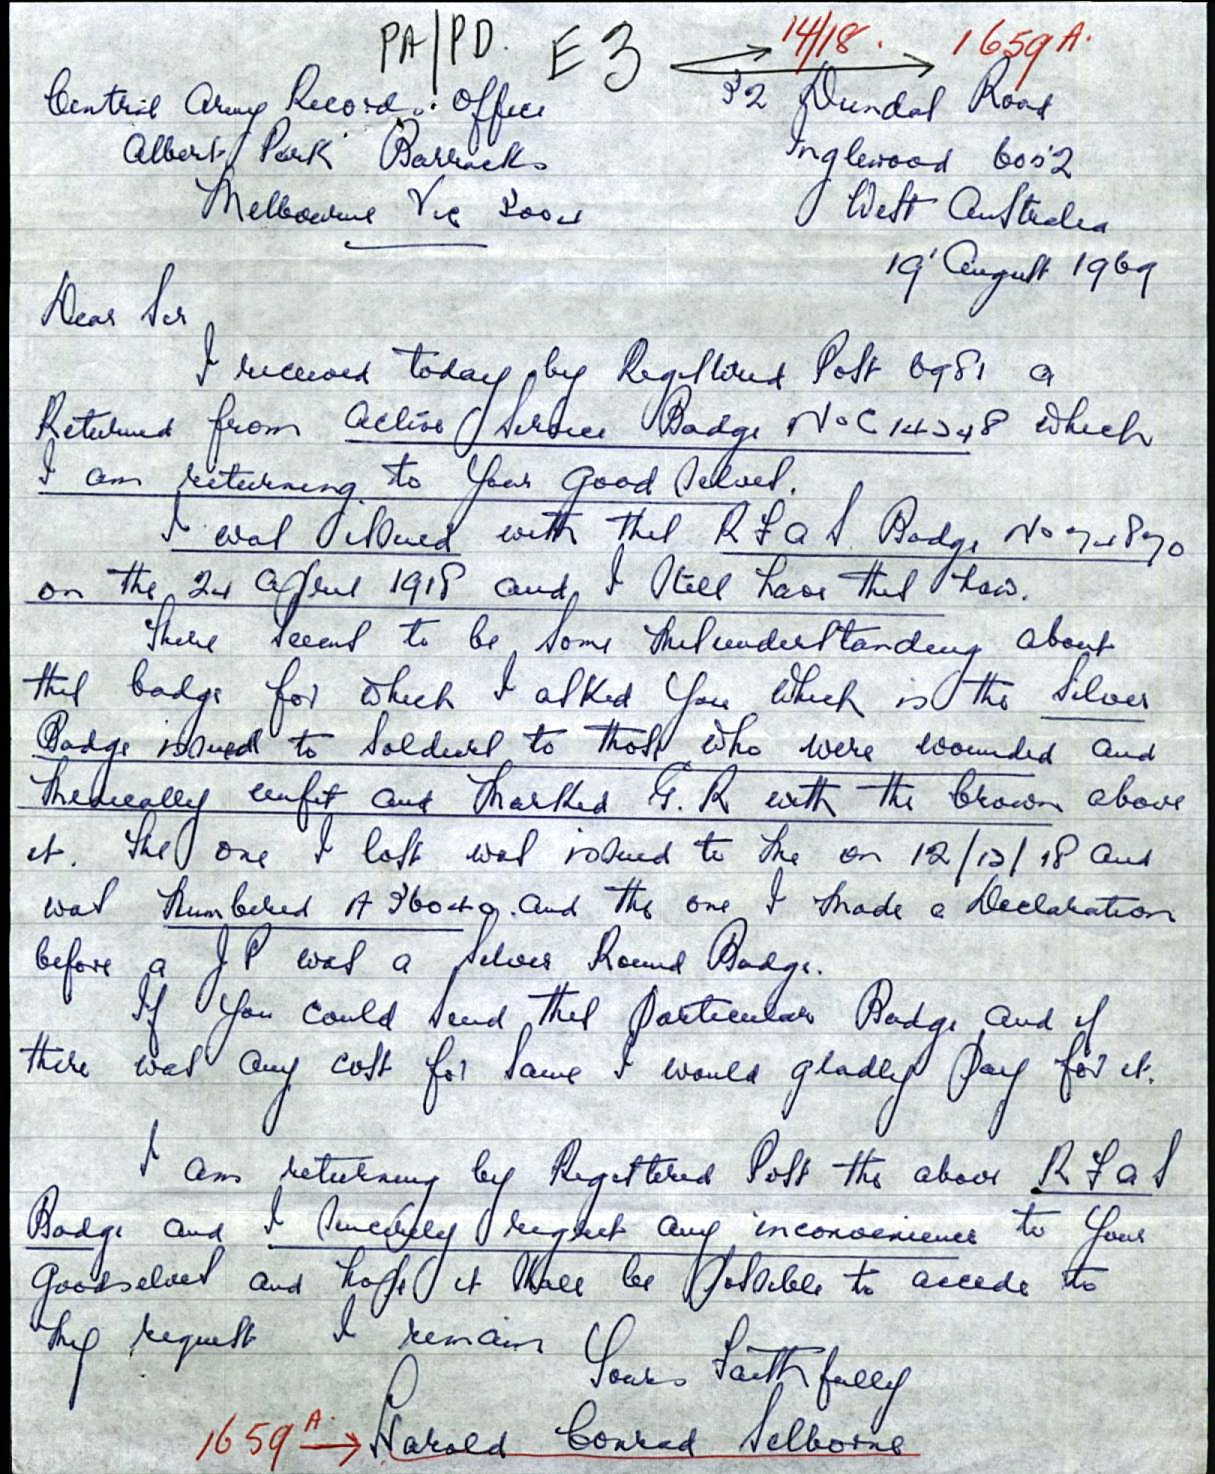 PA/PD. E3 14/18. 1659A.
Central Army Records Office
Albert Park Barracks
Melbourne Vic 3004
32 Dundas Road
Inglewood 6052
West Australia
19 August 1969
Dear Sir
I received today by Registered Post 6981 a
Returned from Active Service Badge No C 14248 which
I am returning to your good selves.
I was issued with this R F A S Badge No 74870
on the 24 April 1918 and I still have this now.
There seems to be some misunderstanding about
this badge for which I asked you which is the Silver
Badge issued to Soldiers to those who were wounded and
medically unfit and marked G. R with the crown above
it. The one I lost was issued to me on 12/12/18 and
was numbered A 36049. and the one I made a Declaration
before a J P was a Silver Round Badge.
If you could send this particular Badge and if
there was any cost for same I would gladly pay for it.
I am returning by Registered Post the above R F A S
Badge and I sincerely regret any inconvenience to your
goodselves and hope it shall be possible to accede to
my request I remain
Yours Faithfully
1659A. Harold Conrad Selborne